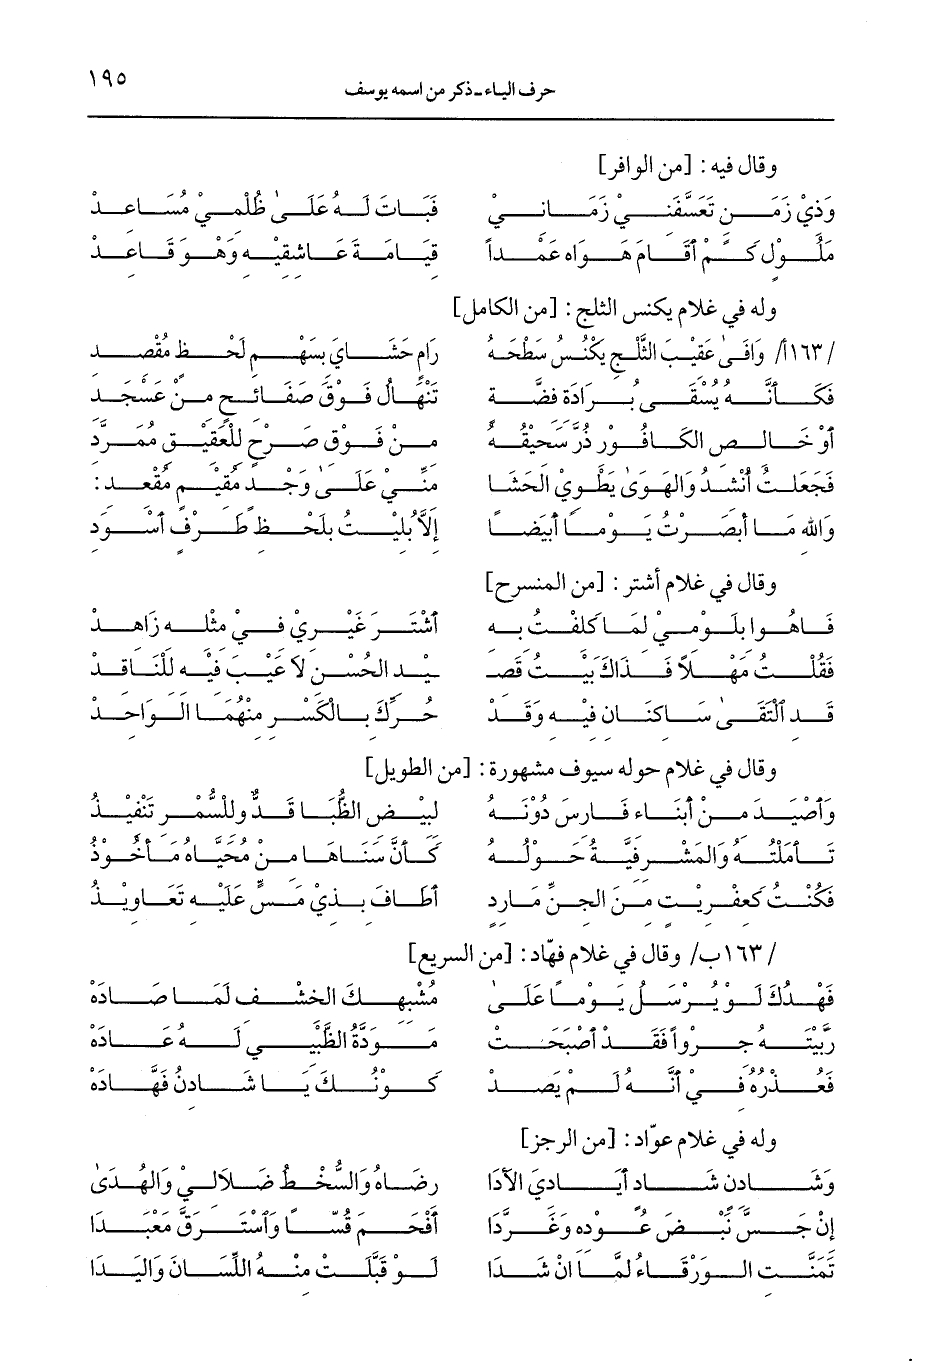 ١٩٥
حرف الياء ـ ذكر من اسمه يوسف
وقال فيه : [من الوافر]
وَذِيْ زَمَنٍ تَعَسَّفَنِيْ زَمَانِيْ فَبَاتَ لَهُ عَلَىٰ ظُلْمِيْ مُسَاعِدْ
مَلُوْلٍ كَمْ أَقَامَ هَوَاه عَمْداً قِيَامَةَ عَاشقِيْهِ وَهْوَ قَاعِدْ
وله في غلام يكنس الثلج : [من الكامل]
/١٦٣أ/ وَافَىٰ عَقِيْبَ الثَّلْجِ يَكْنُسُ سَطْحَهُ رَامٍ حَشَايَ بِسَهْمِ لَحْظٍ مُقْصِدِ
فَكَأَنَّهُ يُسْقَى بُرَادَةَ فِضَّةٍ تَنْهَالُ فَوْقَ صَفَائِحٍ مِنْ عَسْجَدِ
أَوْ خَالِصِ الكَافُوْرِ ذُرَّ سَحِيْقُهُ مِنْ فَوْقِ صَرْحٍ لِلْعَقِيْقِ مُمَرَّدِ
فَجَعَلْتُ أُنْشِدُ وَالهَوَىٰ يَطْوِي الحَشَا مِنِّيْ عَلَىٰ وَجْدٍ مُقِيْمٍ مُقْعِدِ :
وَالله مَا أَبْصَرْتُ يَوْماً أَبْيَضاً إِلاَّ بُلِيْتُ بِلَحْظِ طَرْفٍ أَسْوَدِ
وقال في غلام أشتر : [من المنسرح]
فَاهُوا بِلَوْمِيْ لَمَا كَلِفْتُ بِهِ أَشْتَرَ غَيْرِيْ فِيْ مِثْلِهِ زَاهِدْ
فَقُلْتُ مَهْلاً فَذَاكَ بَيْتُ قَصِـ ـيْدِ الحُسْنِ لاَ عَيْبَ فِيْهِ لِلنَّاقِدْ
قَدِ ٱلتَقَىٰ سَاكِنَانِ فِيْهِ وَقَدْ حُرِّكَ بِالكَسْرِ مِنْهُمَا الوَاحِدْ
وقال في غلام حوله سيوف مشهورة : [من الطويل]
وَأَصْيَدَ مِنْ أَبْنَاءِ فَارِسَ دُوْنَهُ لِبِيْضِ الظُّبَا قَدٌّ وَلِلسُّمْرِ تَنْفِيْذُ
تَأَمَلْتُهُ وَالمَشْرَفِيَّةُ حَوْلَهُ كَأَنَّ سَنَاهَا مِنْ مُحَيَّاهُ مَأْخُوْذُ
فَكُنْتُ كَعِفْرِيْتٍ مِنَ الجِنِّ مَارِدٍ أَطَافَ بِذِيْ مَسٍّ عَلَيْهِ تَعَاوِيْذُ
/١٦٣ب/ وقال في غلام فهّاد : [من السريع]
فَهْدُكَ لَوْ يُرْسَلُ يَوْماً عَلَىٰ مُشْبِهِكَ الخِشْفِ لَمَا صَادَهْ
رَبَّيْتَهُ جِرْواً فَقَدْ أَصْبَحَتْ مَوَدَّةُ الظَّبْيِ لَهُ عَادَهْ
فَعُذْرُهُ فِيْ أَنَّهُ لَمْ يَصِدْ كَوْنُكَ يَا شَادِنُ فَهَّادَهْ
وله في غلام عوّاد : [من الرجز]
وَشَادِنٍ شَادٍ أَيَادِيَ الأَدَا رِضَاهُ وَالسُّخْطُ ضَلاَلِيْ وَالهُدَىٰ
إِنْ جَسَّ نَبْضَ عُوْدِهِ وَغَرَّدَا أَفْحَمَ قُسّاً وَٱسْتَرَقَّ مَعْبَدَا
تَمَنَّتِ الوَرْقَاءُ لَمَّا انْ شَدَا لَوْ قَبَّلَتْ مِنْهُ اللِّسَانَ وَاليَدَا